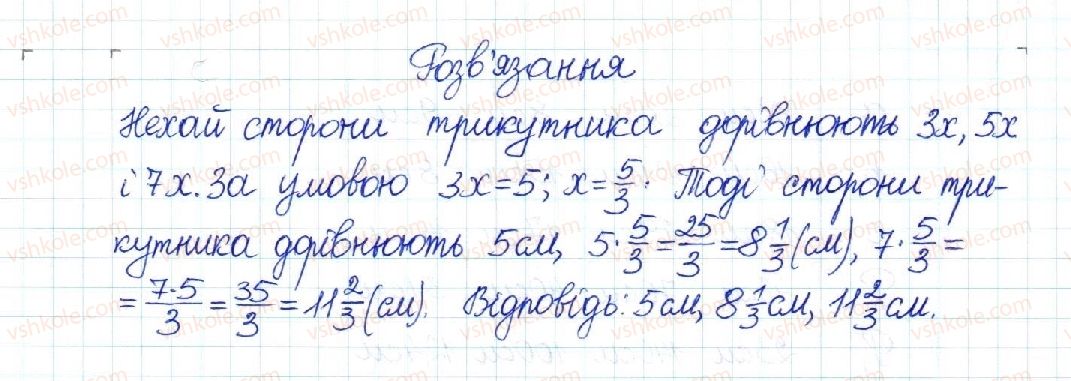 Розв'язання
Нехай сторони трикутника дорівнюють 3x, 5x
і 7x. За умовою 3x=5; x=5/3. Тоді сторони три-
кутника дорівнюють 5см, 5·5/3=25/3=8 1/3(см), 7·5/3=
=7·5/3=35/3=11 2/3(см). Відповідь: 5см, 8 1/3см, 11 2/3см.